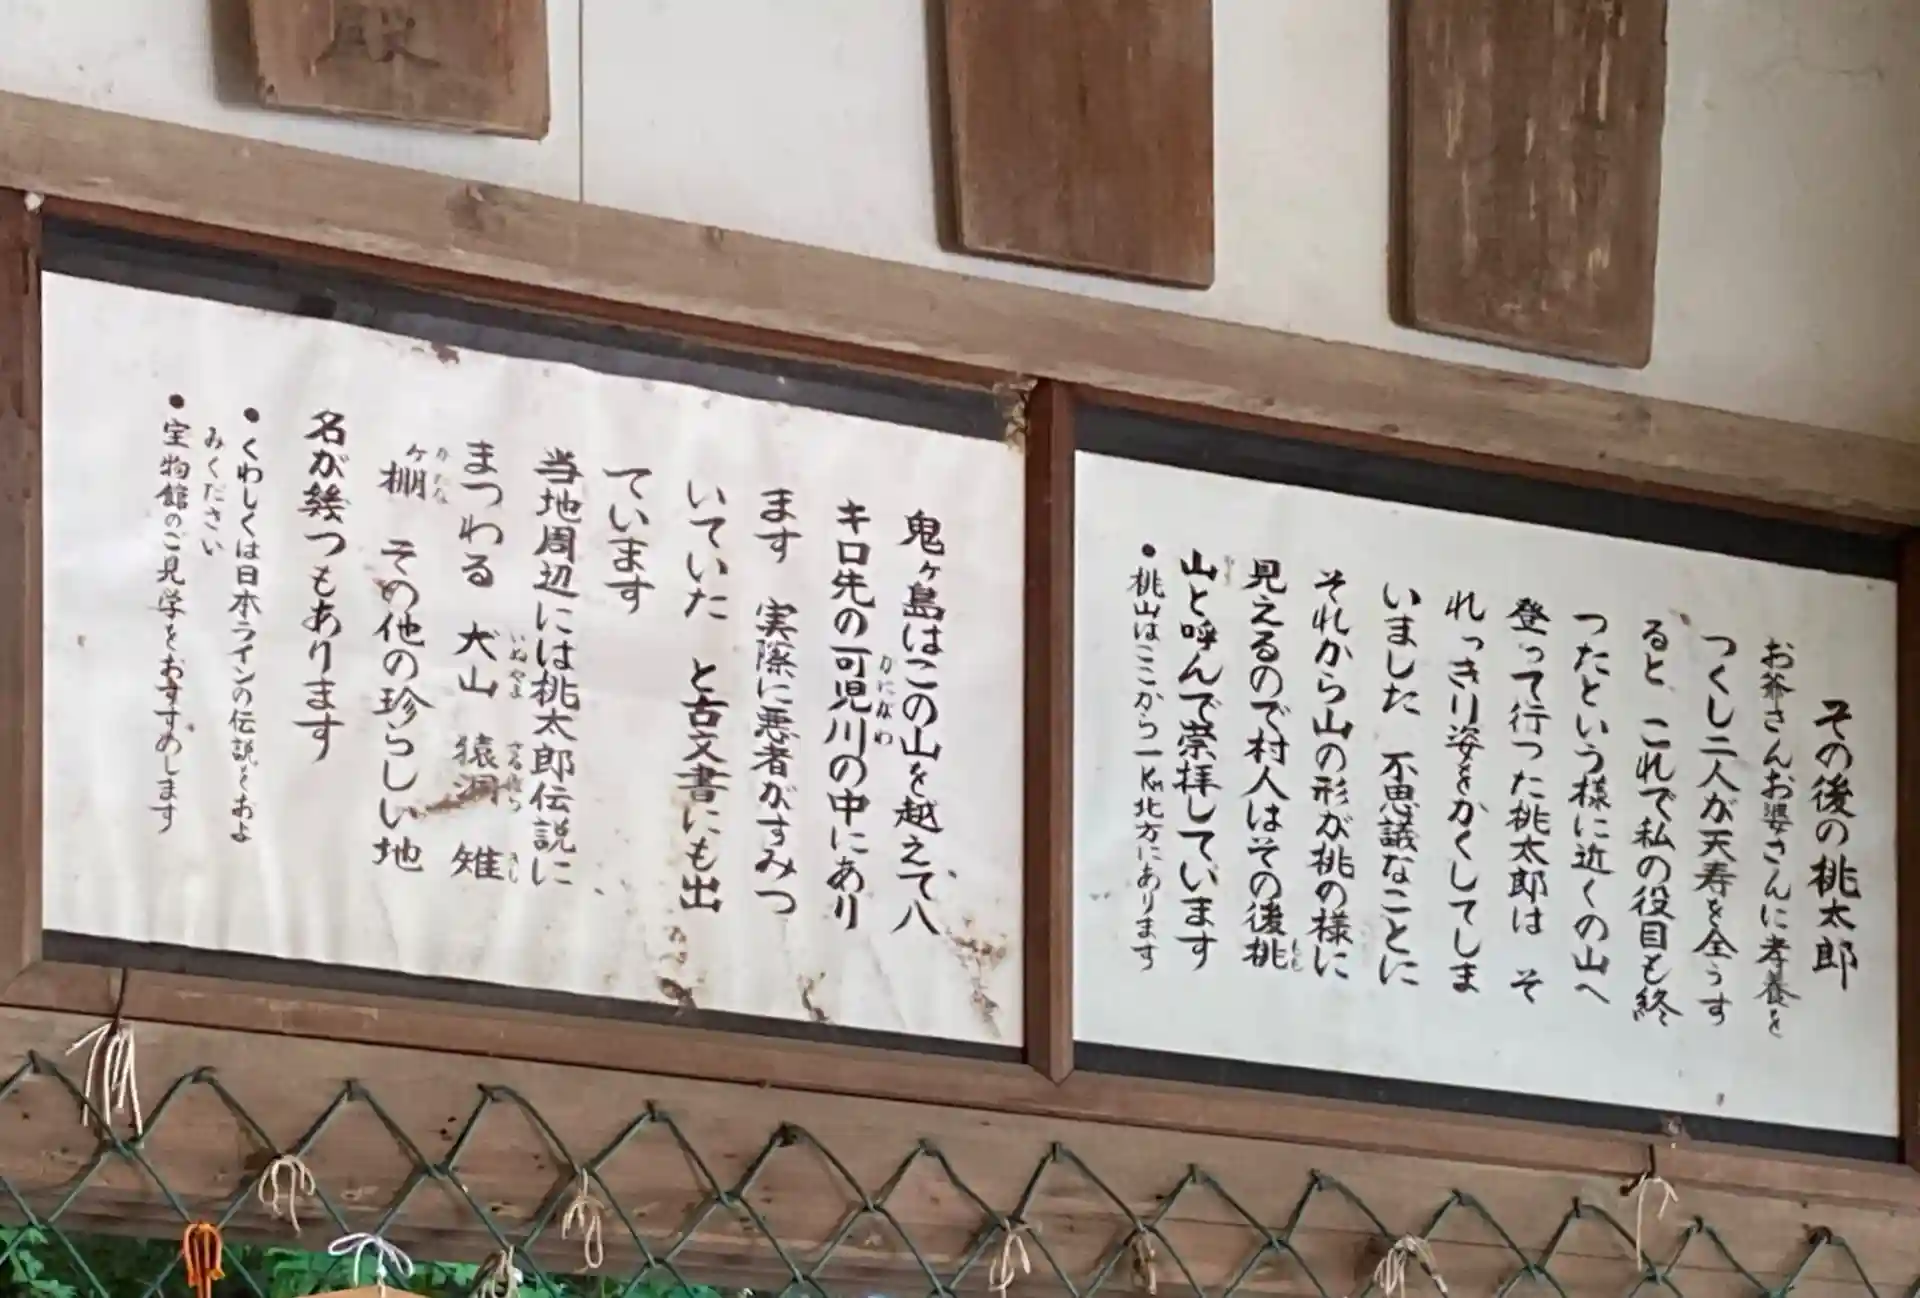 殿
その後の桃太郎
お爺さんお婆さんに孝養を
つくし二人が天寿を全うす
ると、これで私の役目も終
つたという様に近くの山へ
登って行った桃太郎は そ
れっきり姿をかくしてしま
いました 不思議なことに
それから山の形が桃の様に
見えるので村人はその後桃
山と呼んで崇拝しています
●桃山はここから一Km北方にあります
鬼ヶ島はこの山を越えて八
キロ先の可児川の中にあり
ます 実際に悪者がすみつ
いていた と古文書にも出
ています
当地周辺には桃太郎伝説に
まつわる 犬山 猿洞 雉
ヶ棚 その他の珍らしい地
名が幾つもあります
●くわしくは日本ラインの伝説をおよ
みください
●宝物館のご見学をおすすめします